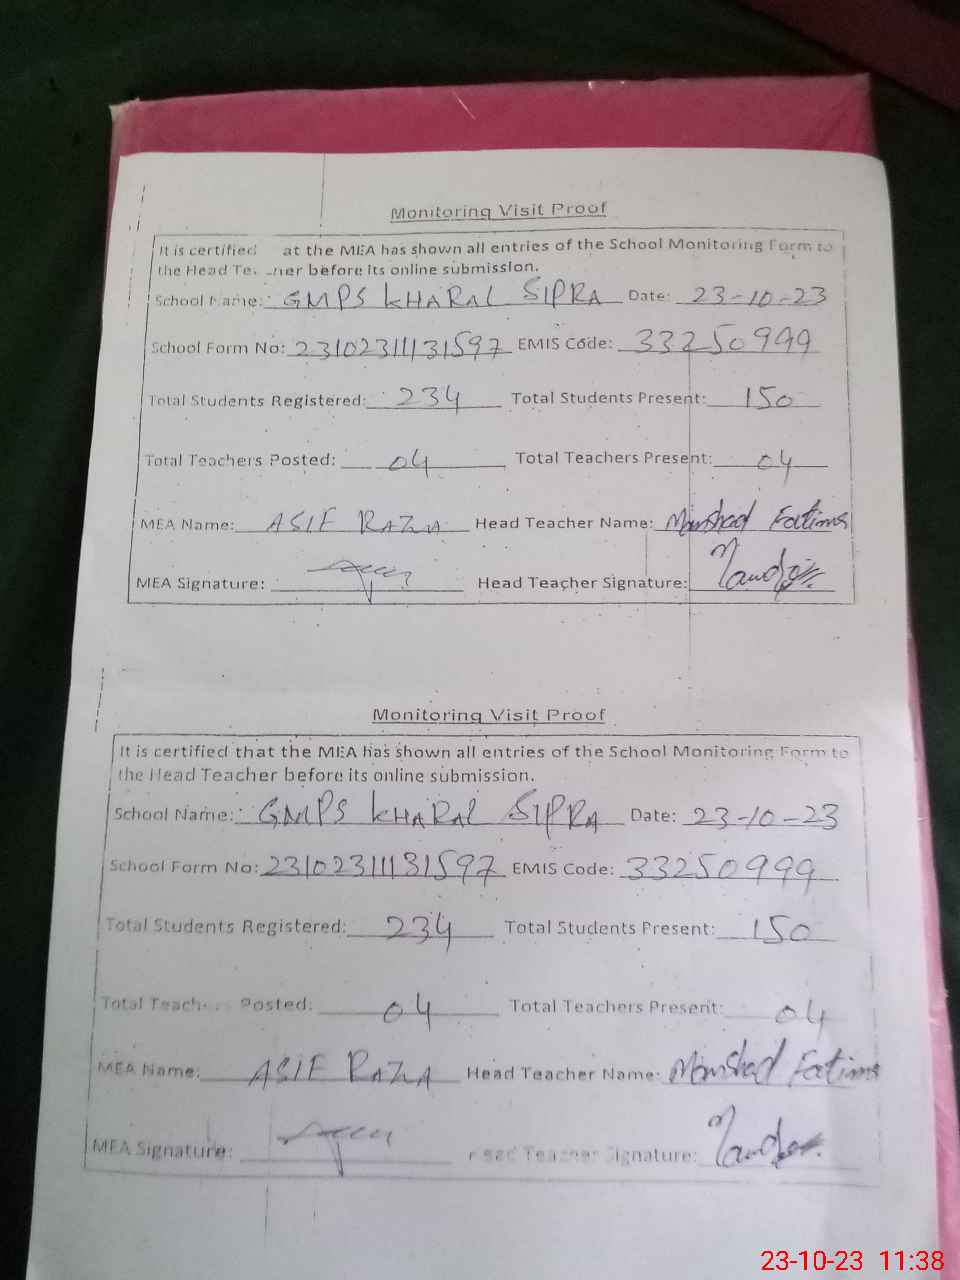 Monitoring Visit Proof
It is certified at the MEA has shown all entries of the School Monitoring Form to
the Head Te. .her before its online submission.
School Name: GMPS KHARAL SIPRA Date: 23-10-23
School Form No: 23102311131597 EMIS Code: 33250999
Total Students Registered: 234 Total Students Present: 150
Total Teachers Posted: 04 Total Teachers Present: 04
MEA Name: ASIF RAZA Head Teacher Name: Manshad Fatima
MEA Signature: Head Teacher Signature:
Monitoring Visit Proof
It is certified that the MEA has shown all entries of the School Monitoring Form to
the Head Teacher before its online submission.
School Name: GMPS KHARAL SIPRA Date: 23-10-23
School Form No: 23102311131597 EMIS Code: 33250999
Total Students Registered: 234 Total Students Present: 150
Total Teachers Posted: 04 Total Teachers Present: 04
MEA Name: ASIF RAZA Head Teacher Name: Manshad Fatima
MEA Signature: Head Teacher Signature:
23-10-23 11:38